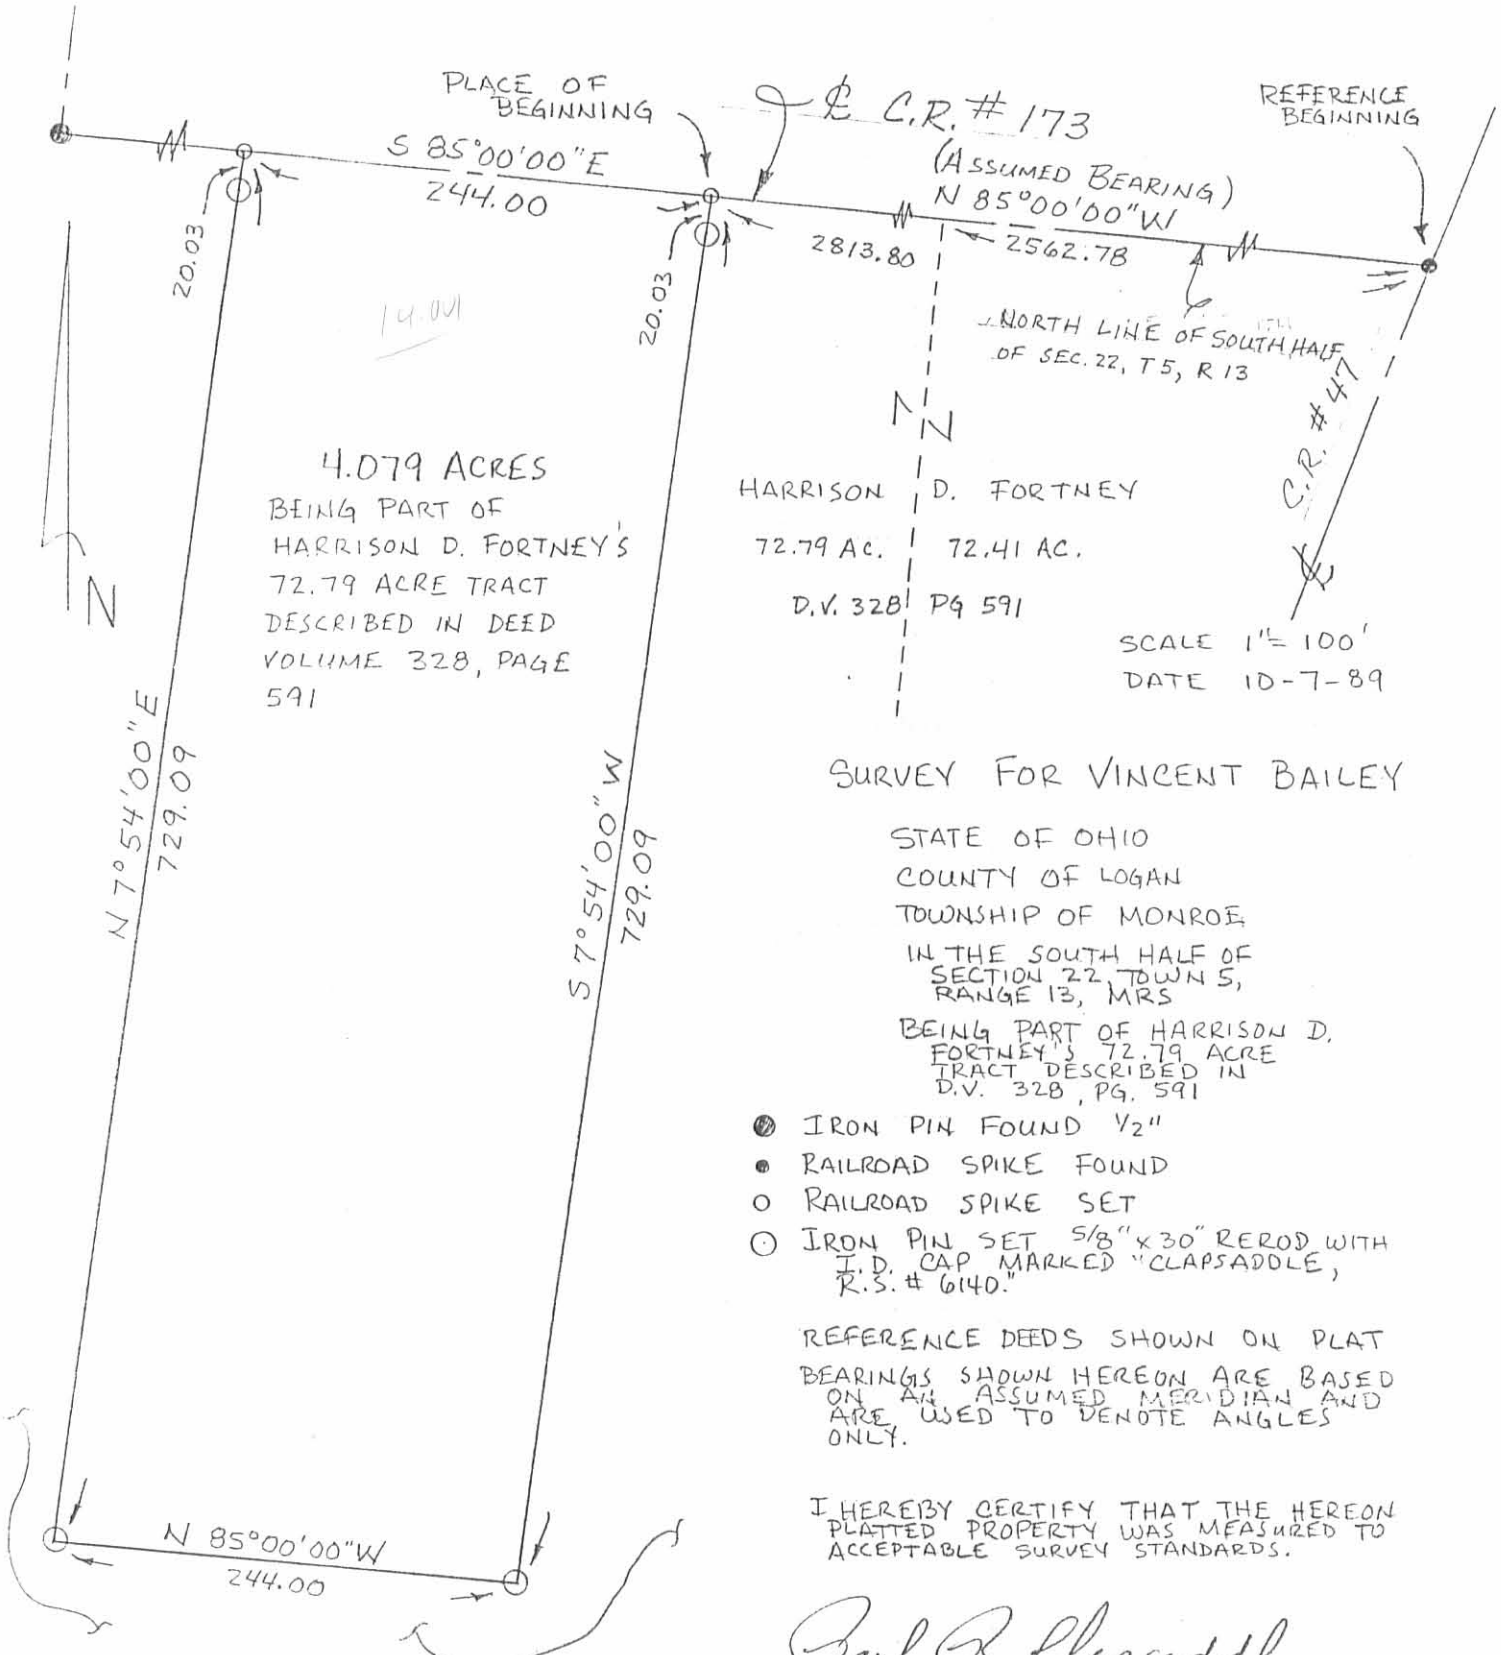 PLACE OF
BEGINNING
℄ C.R. # 173
(ASSUMED BEARING)
N 85°00'00"W
REFERENCE
BEGINNING
S 85°00'00"E
244.00
2813.80
2562.78
20.03
20.03
NORTH LINE OF SOUTH HALF
OF SEC. 22, T 5, R 13
C.R. # 47
℄
4.079 ACRES
BEING PART OF
HARRISON D. FORTNEY'S
72.79 ACRE TRACT
DESCRIBED IN DEED
VOLUME 328, PAGE
591
HARRISON D. FORTNEY
72.79 AC. 72.41 AC.
D.V. 328 PG 591
N
SCALE 1"= 100'
DATE 10-7-89
N 7°54'00"E
729.09
S 7°54'00"W
729.09
SURVEY FOR VINCENT BAILEY
STATE OF OHIO
COUNTY OF LOGAN
TOWNSHIP OF MONROE
IN THE SOUTH HALF OF
SECTION 22, TOWN 5,
RANGE 13, MRS
BEING PART OF HARRISON D.
FORTNEY'S 72.79 ACRE
TRACT DESCRIBED IN
D.V. 328, PG. 591
IRON PIN FOUND 1/2"
RAILROAD SPIKE FOUND
RAILROAD SPIKE SET
IRON PIN SET 5/8" x 30" REROD WITH
I.D. CAP MARKED "CLAPSADDLE,
R.S. # 6140."
REFERENCE DEEDS SHOWN ON PLAT
BEARINGS SHOWN HEREON ARE BASED
ON AN ASSUMED MERIDIAN AND
ARE USED TO DENOTE ANGLES
ONLY.
I HEREBY CERTIFY THAT THE HEREON
PLATTED PROPERTY WAS MEASURED TO
ACCEPTABLE SURVEY STANDARDS.
N 85°00'00"W
244.00